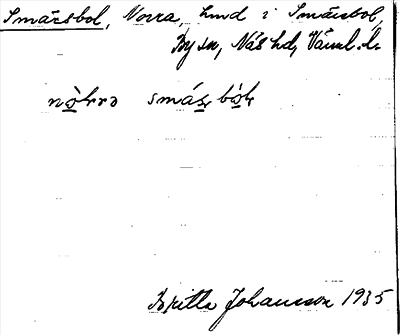 Smårsbol, Norra, hmd i Smårsbol,
By sn, Näs hd, Värml. l.
nò̱rrə smås̱bòḻ
Britta Johansson 1935